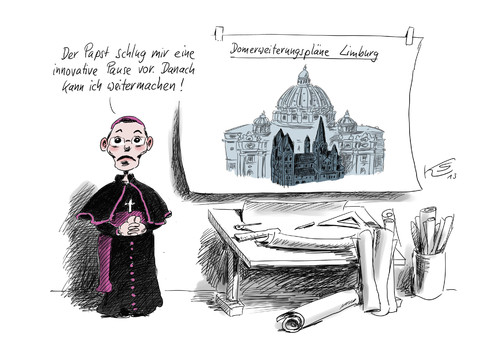 Der Papst schlug mir eine
innovative Pause vor. Danach
kann ich weitermachen!
Domerweiterungspläne Limburg
13